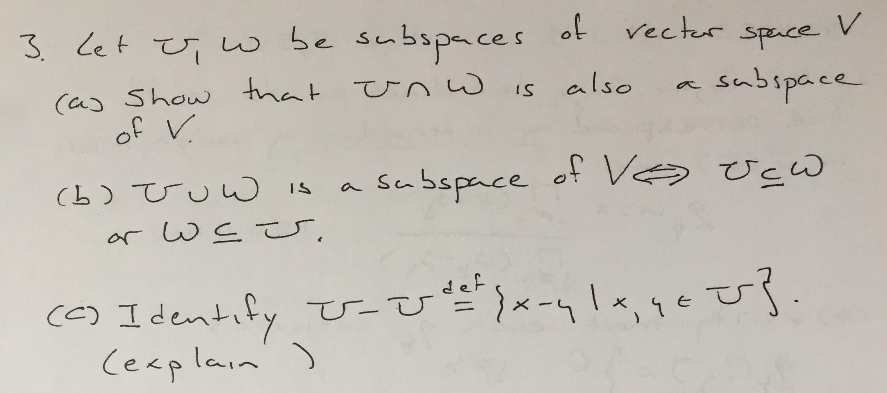 3. Let U, W be subspaces of vector space V
(a) Show that U ∩ W is also a subspace
of V.
(b) U ∪ W is a subspace of V ⇔ U ⊆ W
or W ⊆ U.
(c) Identify U - U def= {x-y | x, y ∈ U}.
(explain)